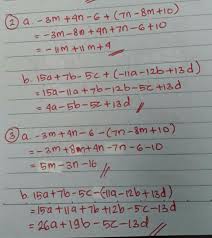 ② a. -3m+4n-6+(7n-8m+10)
= -3m-8m+4n+7n-6+10
= -11m+11m+4
b. 15a+7b-5c+(-11a-12b+13d)
= 15a-11a+7b-12b-5c+13d
= 4a-5b-5c+13d
③ a. -3m+4n-6-(7n-8m+10)
= -3m+8m+4n-7n-6-10
= 5m-3n-16
b. 15a+7b-5c-(-11a-12b+13d)
= 15a+11a+7b+12b-5c-13d
= 26a+19b-5c-13d